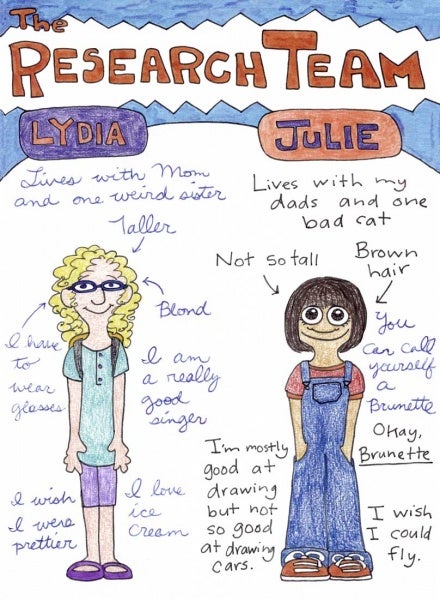 The
RESEARCH TEAM
LYDIA
JULIE
Lives with Mom
and one weird sister
Taller
Blond
I have
to
wear
glasses
I am
a really
good
singer
I wish
I were
prettier
I love
ice
cream
Lives with my
dads and one
bad cat
Not so tall
Brown
hair
You
can call
yourself
a
Brunette
Okay,
Brunette
I'm mostly
good at
drawing
but not
so good
at drawing
cars.
I wish
I could
fly.